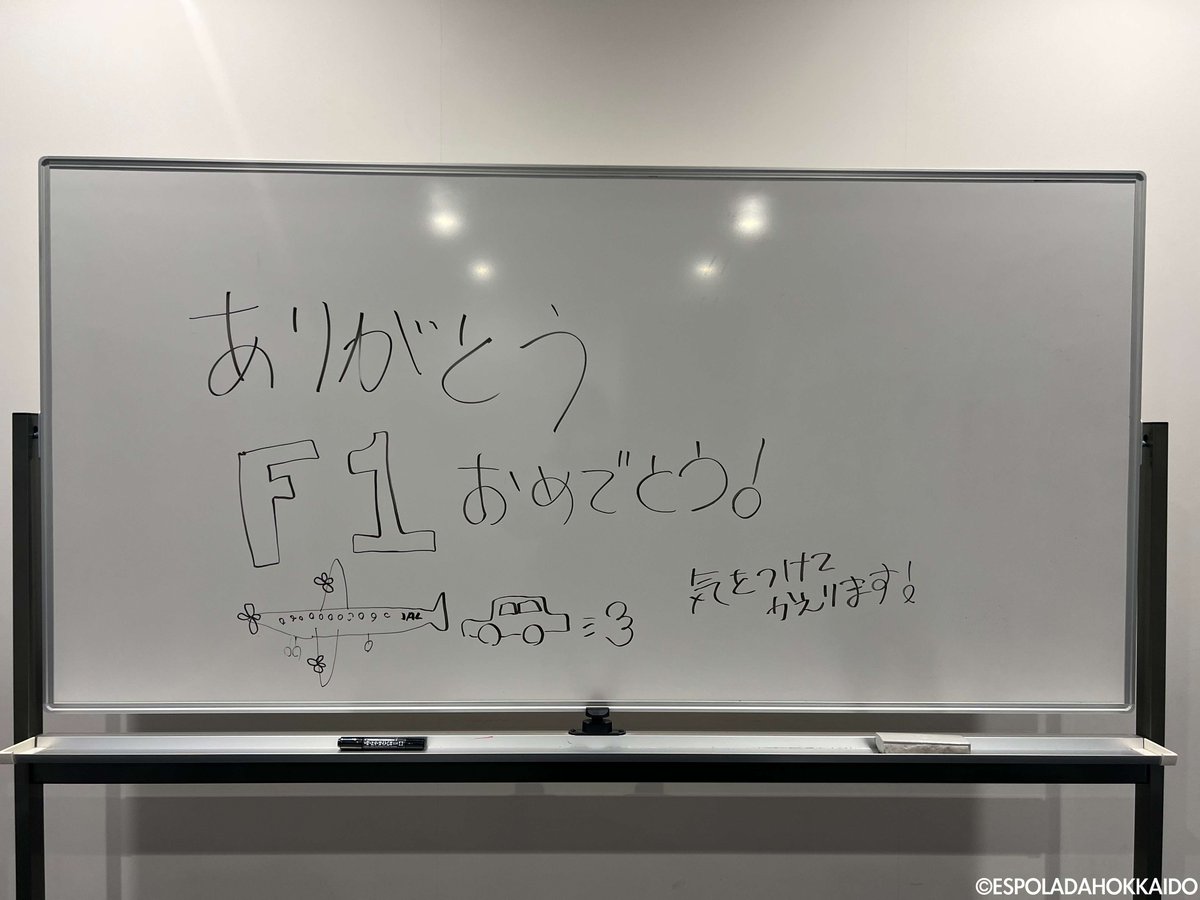 ありがとう
F1 おめでとう!
気をつけて
かえります!
JAL
©ESPOLADAHOKKAIDO